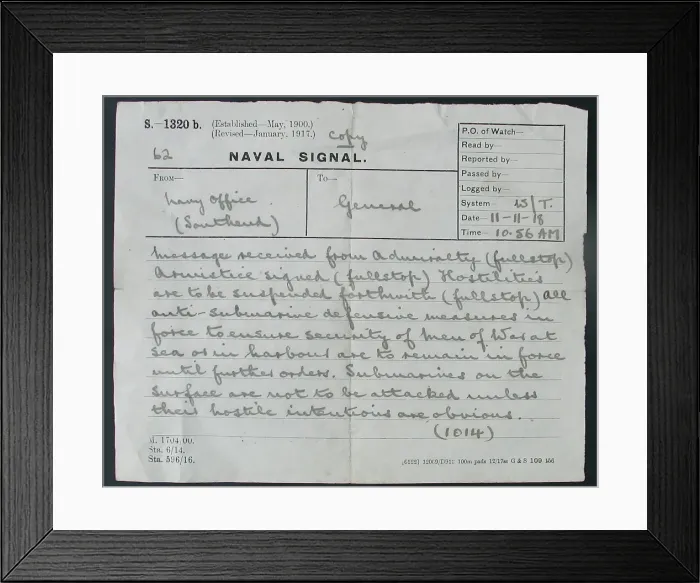 S.—1320 b. (Established—May, 1900.)
(Revised—January, 1917.)
Copy
62
NAVAL SIGNAL.
P.O. of Watch—
Read by—
Reported by—
Passed by—
Logged by—
System— W/T.
Date— 11-11-18
Time— 10.56 AM
FROM—
Navy Office
(Southend)
To—
General
Message received from Admiralty (fullstop)
Armistice signed (fullstop) Hostilities
are to be suspended forthwith (fullstop) All
anti-submarine defensive measures in
force to ensure security of Men of War at
sea or in harbour are to remain in force
until further orders. Submarines on the
surface are not to be attacked unless
their hostile intentions are obvious.
(1014)
Sta. 6/14.
Sta. 596/16.
100m pads 12/17 G & S